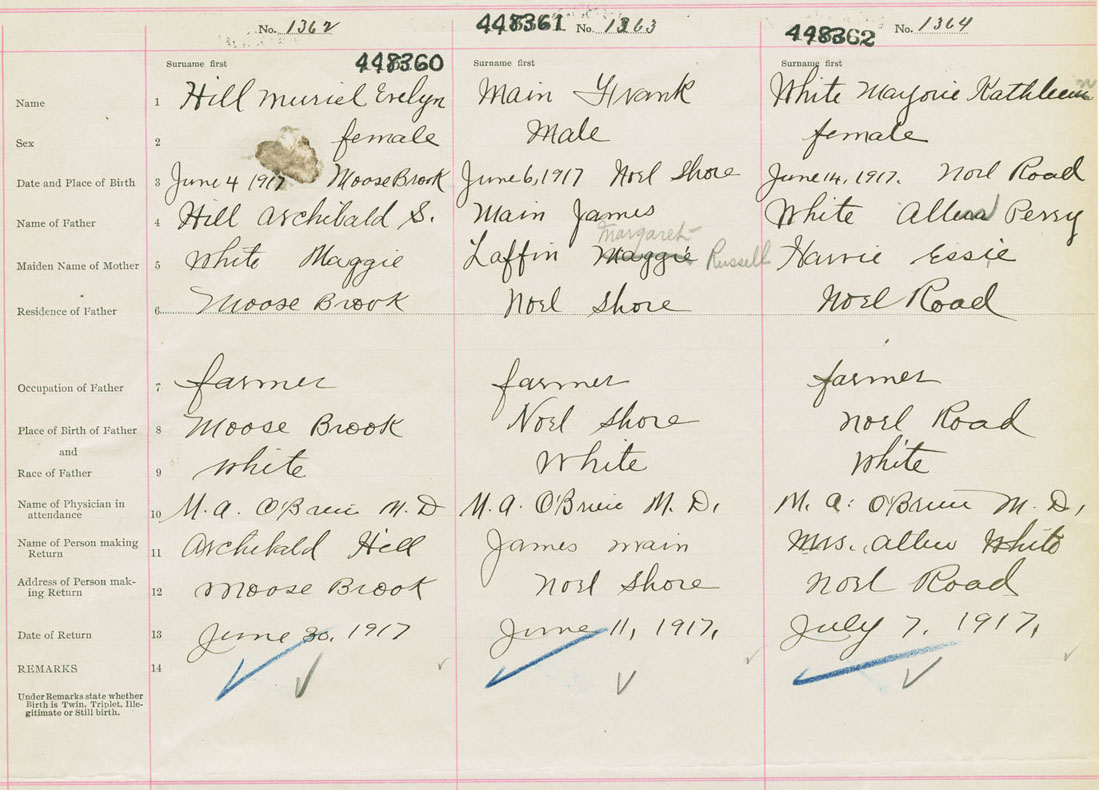 No. 1362 448361 No. 1363 448362 No. 1364
Surname first 448360 Surname first Surname first
Name 1 Hill Muriel Evelyn Main Frank White Marjorie Kathleen
Sex 2 female Male female
Date and Place of Birth 3 June 4 1917 Moose Brook June 6, 1917 Noel Shore June 14, 1917. Noel Road
Name of Father 4 Hill Archibald S. Main James White Allen Perry
Margaret
Maiden Name of Mother 5 White Maggie Laffin Maggie Russell Essie
Residence of Father 6 Moose Brook Noel Shore Noel Road
Occupation of Father 7 farmer farmer farmer
Place of Birth of Father 8 Moose Brook Noel Shore Noel Road
and
Race of Father 9 white White White
Name of Physician in
attendance 10 M. A. O'Brien M. D M. A. O'Brien M. D. M. A. O'Brien M. D.
Name of Person making
Return 11 Archibald Hill James Main Mrs. Allen White
Address of Person mak-
ing Return 12 Moose Brook Noel Shore Noel Road
Date of Return 13 June 30, 1917 June 11, 1917. July 7, 1917.
REMARKS 14
Under Remarks state whether
Birth is Twin, Triplet, Ille-
gitimate or Still birth.